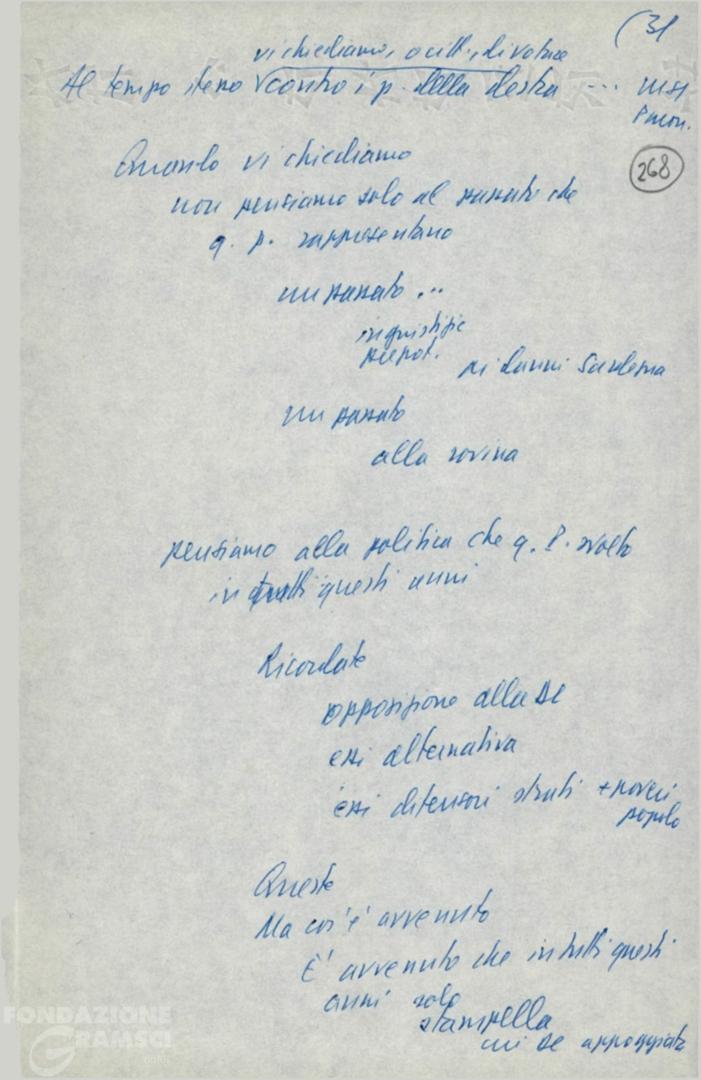 (31
vi chiediamo, o citt., di votare
Al tempo stesso contro i p. della destra ... MSI
P mon.
268
Quando vi chiediamo
non pensiamo solo al passato che
q. p. rappresentano
un passato ...
ingiustizie
ai danni Sardegna
un passato
alla rovina
pensiamo alla politica che q. P. svolto
in tutti questi anni
Ricordate
opposizione alla DC
essi alternativa
essi difensori strati + poveri
popolo
Queste
Ma cos'è avvenuto
È avvenuto che in tutti questi
anni solo
stampella
cui DC appoggiata
FONDAZIONE
GRAMSCI